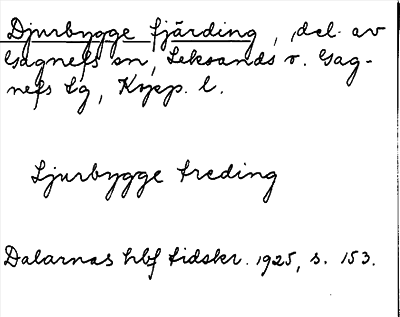 Djurbygge fjärding, del av
Gagnefs sn, Leksands o. Gag-
nefs tg, Kopp. l.
Djurbygge treding
Dalarnas hbf tidskr. 1925, s. 153.